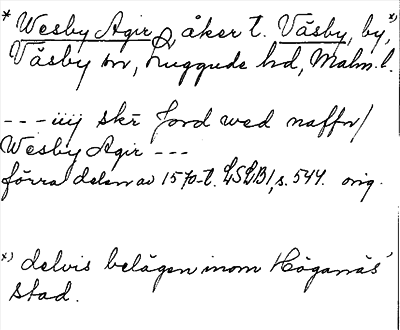 * Wesby Agir, åker t. Väsby, by, x)
Väsby sn, Luggude hd, Malm. l.
--- iiij skr Jord wed naffn/
Wesby Agir ---
förra delen av 1570-t. LSLB1, s. 544. orig.
x) delvis belägen inom Höganäs
stad.